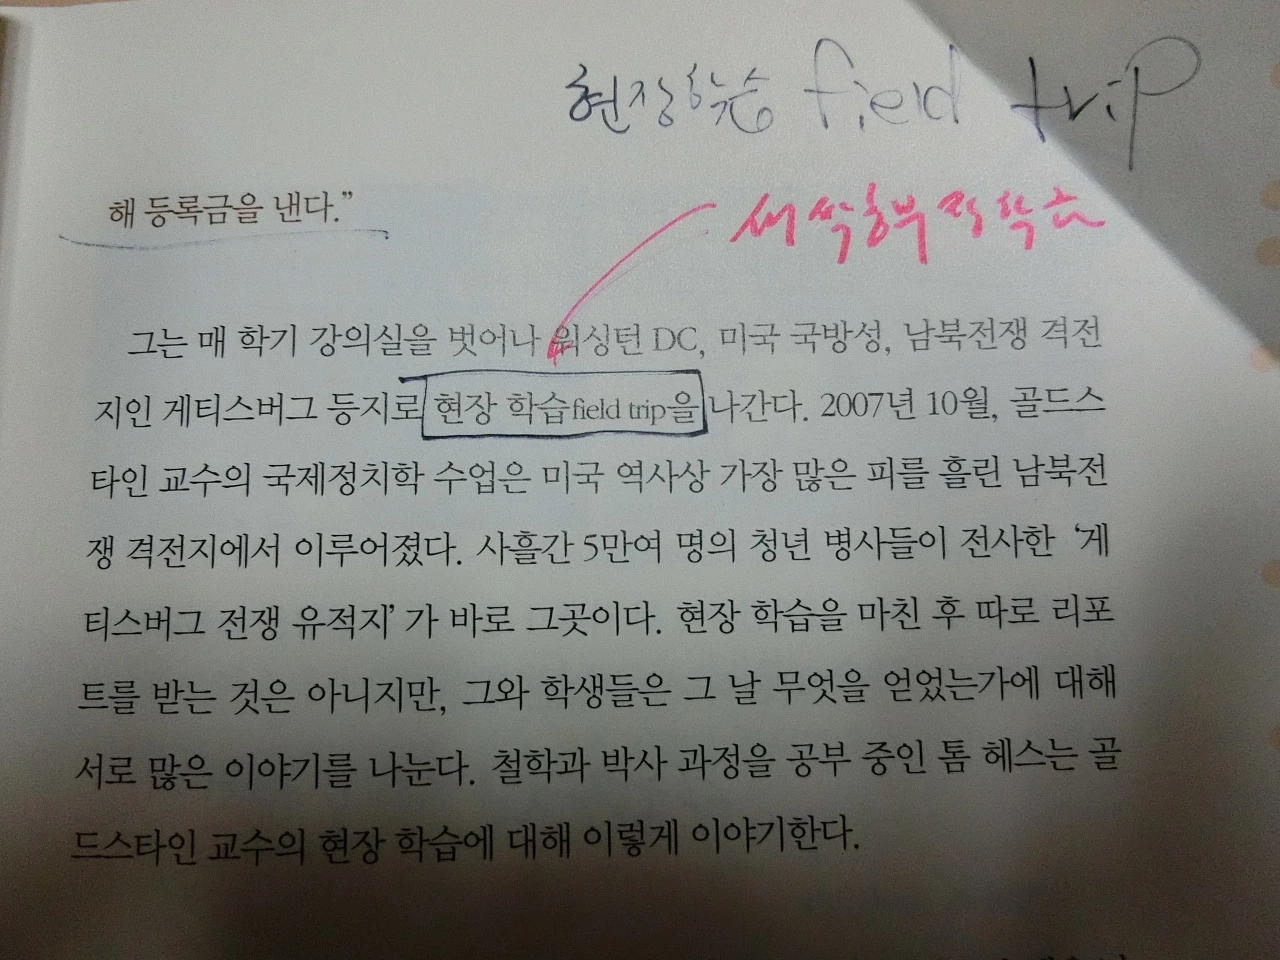 현장학습 field trip
해 등록금을 낸다.”
그는 매 학기 강의실을 벗어나 워싱턴 DC, 미국 국방성, 남북전쟁 격전
지인 게티스버그 등지로 현장 학습field trip을 나간다. 2007년 10월, 골드스
타인 교수의 국제정치학 수업은 미국 역사상 가장 많은 피를 흘린 남북전
쟁 격전지에서 이루어졌다. 사흘간 5만여 명의 청년 병사들이 전사한 ‘게
티스버그 전쟁 유적지’가 바로 그곳이다. 현장 학습을 마친 후 따로 리포
트를 받는 것은 아니지만, 그와 학생들은 그 날 무엇을 얻었는가에 대해
서로 많은 이야기를 나눈다. 철학과 박사 과정을 공부 중인 톰 헤스는 골
드스타인 교수의 현장 학습에 대해 이렇게 이야기한다.